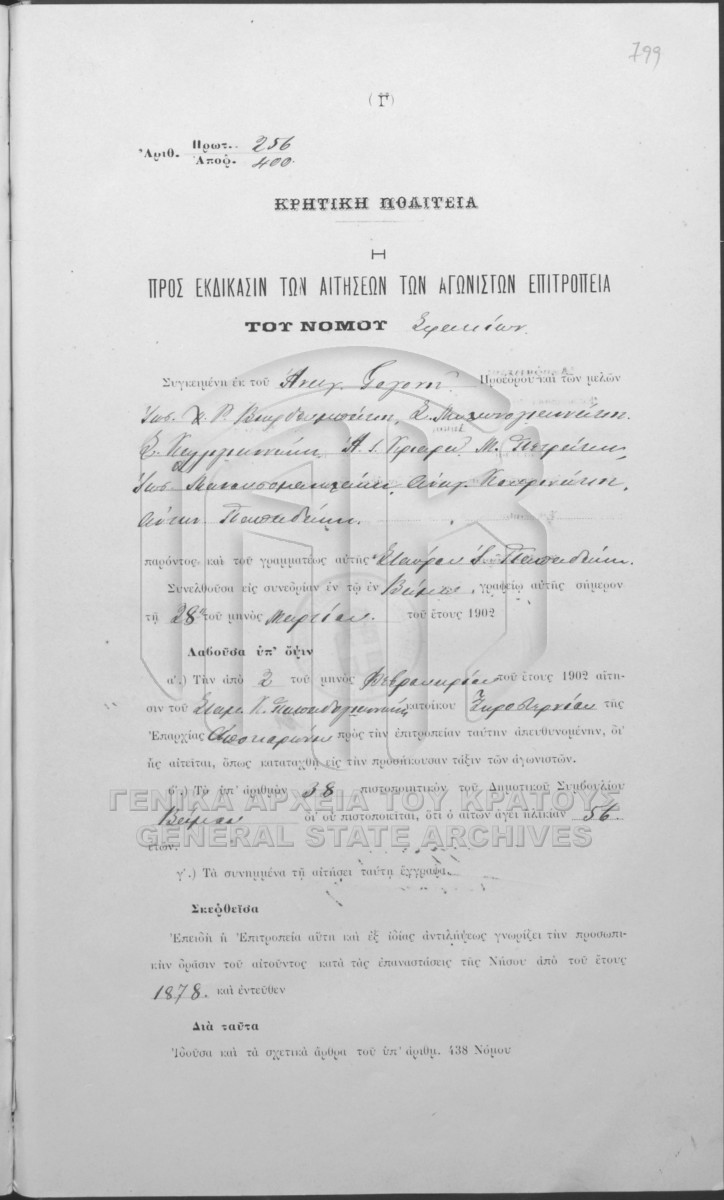 799
(Γ)
Ἀριθ. Πρωτ. 256
Ἀποφ. 400
ΚΡΗΤΙΚΗ ΠΟΛΙΤΕΙΑ
Η
ΠΡΟΣ ΕΚΔΙΚΑΣΙΝ ΤΩΝ ΑΙΤΗΣΕΩΝ ΤΩΝ ΑΓΩΝΙΣΤΩΝ ΕΠΙΤΡΟΠΕΙΑ
ΤΟΥ ΝΟΜΟΥ Σφακίων
Συγκειμένη ἐκ τοῦ Ἀναγ. Προέδρου καὶ τῶν μελῶν
Ἰωσ. Χ. Γ.
Σ. Ἀ. Ι. Κριαρᾶ Μ. Πετράκη,
Ἰωσ. Ἀναγ.
Ἀντων. Παπαδάκη.
παρόντος καὶ τοῦ γραμματέως αὐτῆς Σταύρου Παπαδάκη.
Συνελθοῦσα εἰς συνεδρίαν ἐν τῷ ἐν Βάμῳ, γραφείῳ αὐτῆς σήμερον
τῇ 28ῃ τοῦ μηνὸς Μαρτίου. τοῦ ἔτους 1902
Λαβοῦσα ὑπ' ὄψιν
α'.) Τὴν ἀπὸ 2 τοῦ μηνὸς Φεβρουαρίου τοῦ ἔτους 1902 αἴτη-
σιν τοῦ Σταμ. Κ. Παπαδογιαννάκη κατοίκου Ξηροστερνίου τῆς
Ἐπαρχίας Ἀποκορώνου πρὸς τὴν ἐπιτροπείαν ταύτην ἀπευθυνομένην, δι'
ἧς αἰτεῖται, ὅπως καταταχθῇ εἰς τὴν προσήκουσαν τάξιν τῶν ἀγωνιστῶν.
β'.) Τὸ ὑπ' ἀριθμὸν 38 πιστοποιητικὸν τοῦ Δημοτικοῦ Συμβουλίου
Βάμου δι' οὗ πιστοποιεῖται, ὅτι ὁ αἰτῶν ἄγει ἡλικίαν 56
ἐτῶν.
γ'.) Τὰ συνημμένα τῇ αἰτήσει ταύτῃ ἔγγραφα.
Σκεφθεῖσα
Ἐπειδὴ ἡ Ἐπιτροπεία αὕτη καὶ ἐξ ἰδίας ἀντιλήψεως γνωρίζει τὴν προσωπι-
κὴν δρᾶσιν τοῦ αἰτοῦντος κατὰ τὰς ἐπαναστάσεις τῆς Νήσου ἀπὸ τοῦ ἔτους
1878. καὶ ἐντεῦθεν
Διὰ ταῦτα
Ἰδοῦσα καὶ τὰ σχετικὰ ἄρθρα τοῦ ὑπ' ἀριθμ. 438 Νόμου
ΓΕΝΙΚΑ ΑΡΧΕΙΑ ΤΟΥ ΚΡΑΤΟΥΣ
GENERAL STATE ARCHIVES